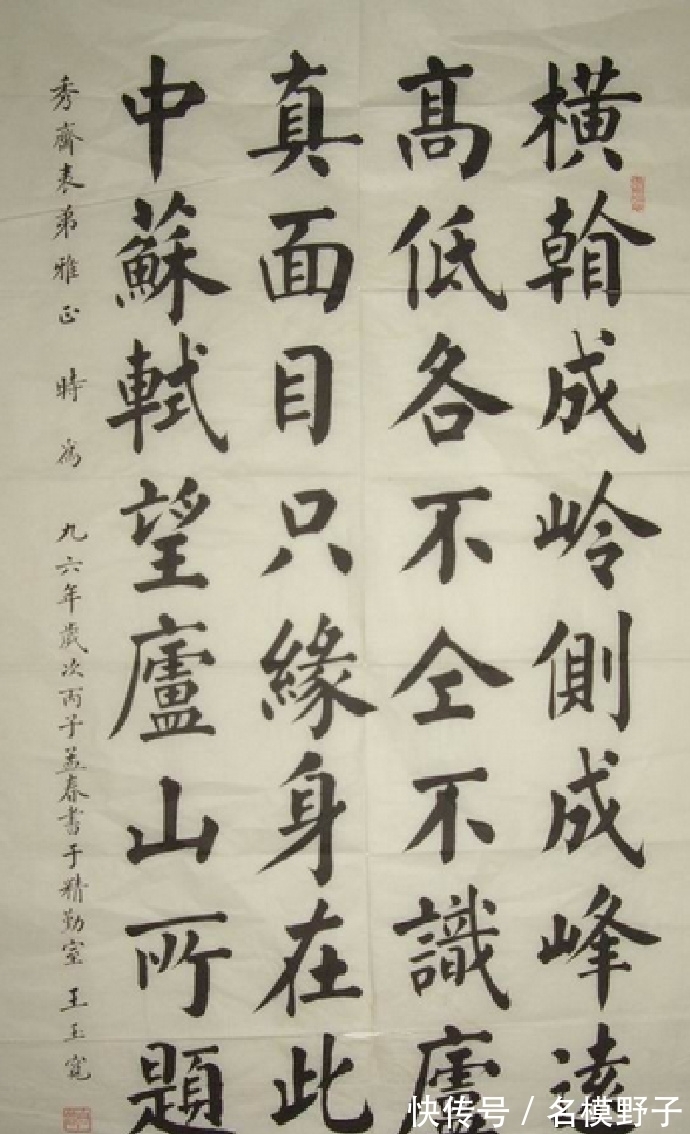 橫看成岭側成峰遠
髙低各不仝不識廬
真面目只緣身在此
中蘇軾望廬山所題
秀齊表弟雅正 時為 九六年歲次丙子孟春書于精勤室 王玉寬
快传号 / 名模野子